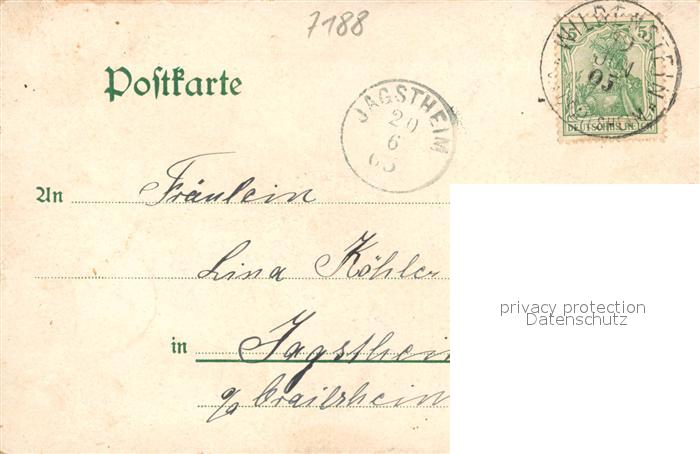 7188
Postkarte
JAGSTHEIM
20
6
05
WILDENSTEIN
20
JUN
05
DEUTSCHES
An Fräulein
Lina Köhler
privacy protection
Datenschutz
in Jagstheim
Crailsheim